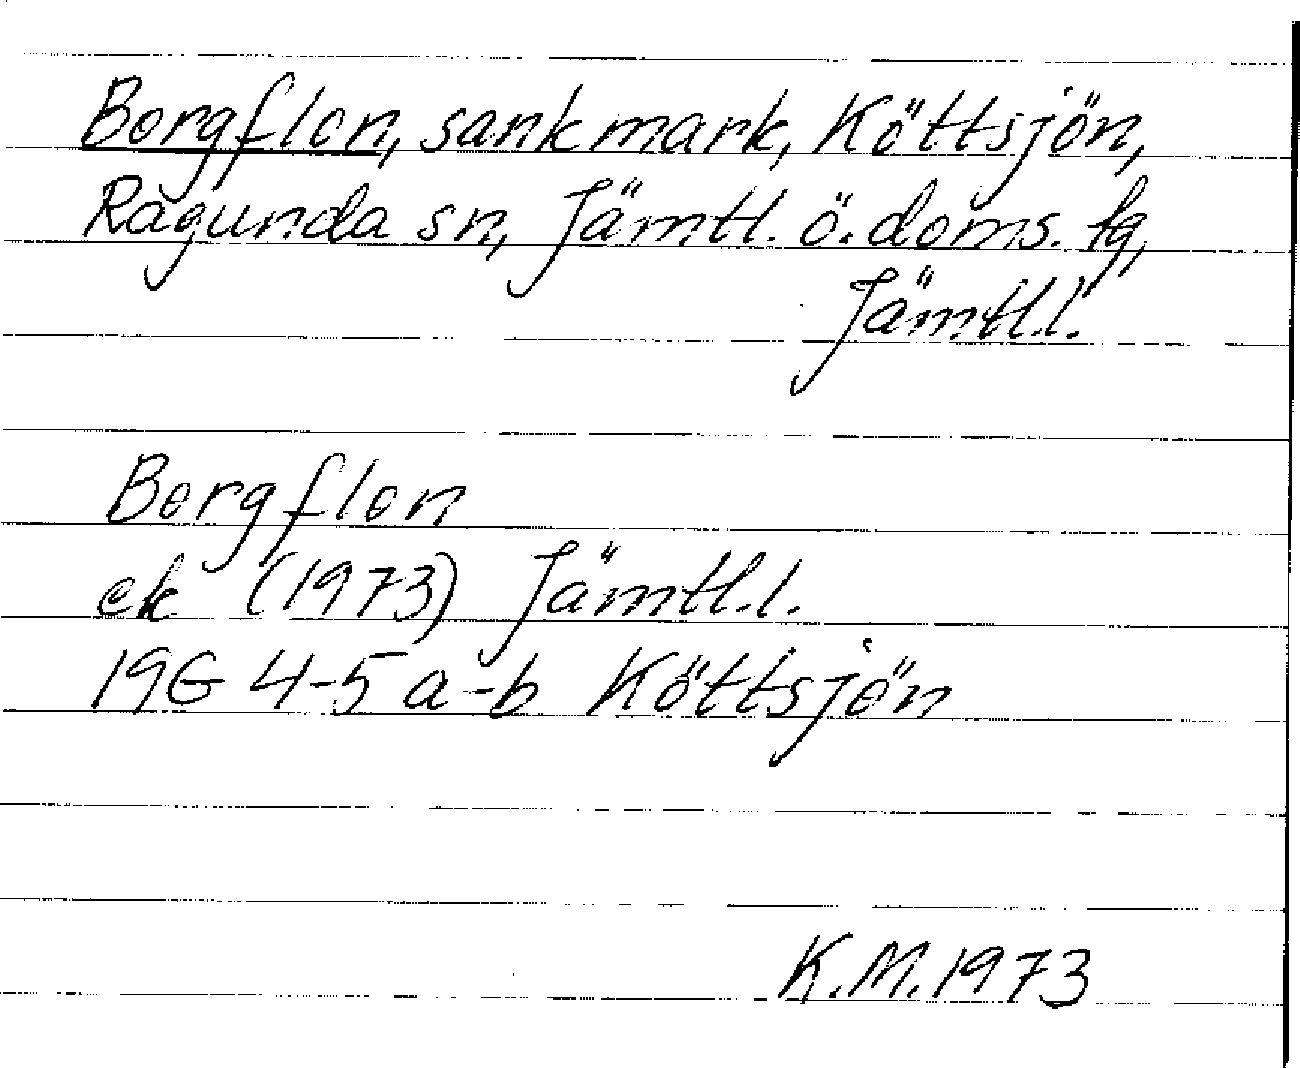 Bergflon, sankmark, Köttsjön,
Ragunda sn, Jämtl. ö. doms. fg,
Jämtl.l.
Bergflon
ek (1973) Jämtl.l.
19G 4-5 a-b Köttsjön
K.M. 1973